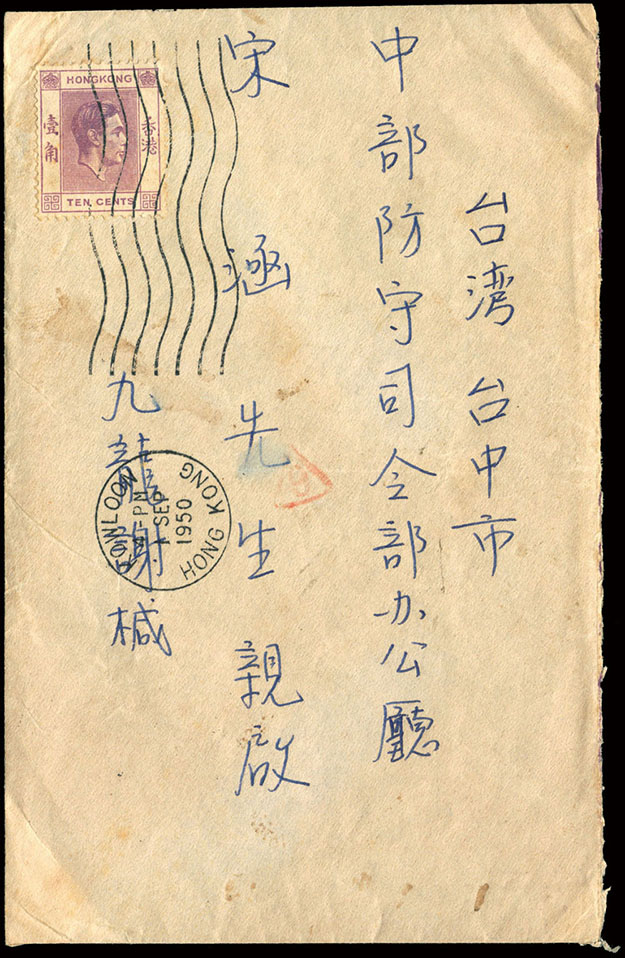 台湾 台中市
中部防守司令部办公廳
宋涵先生親啟
九龍謝椷
HONGKONG
香港
壹角
TEN CENTS
KOWLOON
PM
1 SEP
1950
HONG KONG